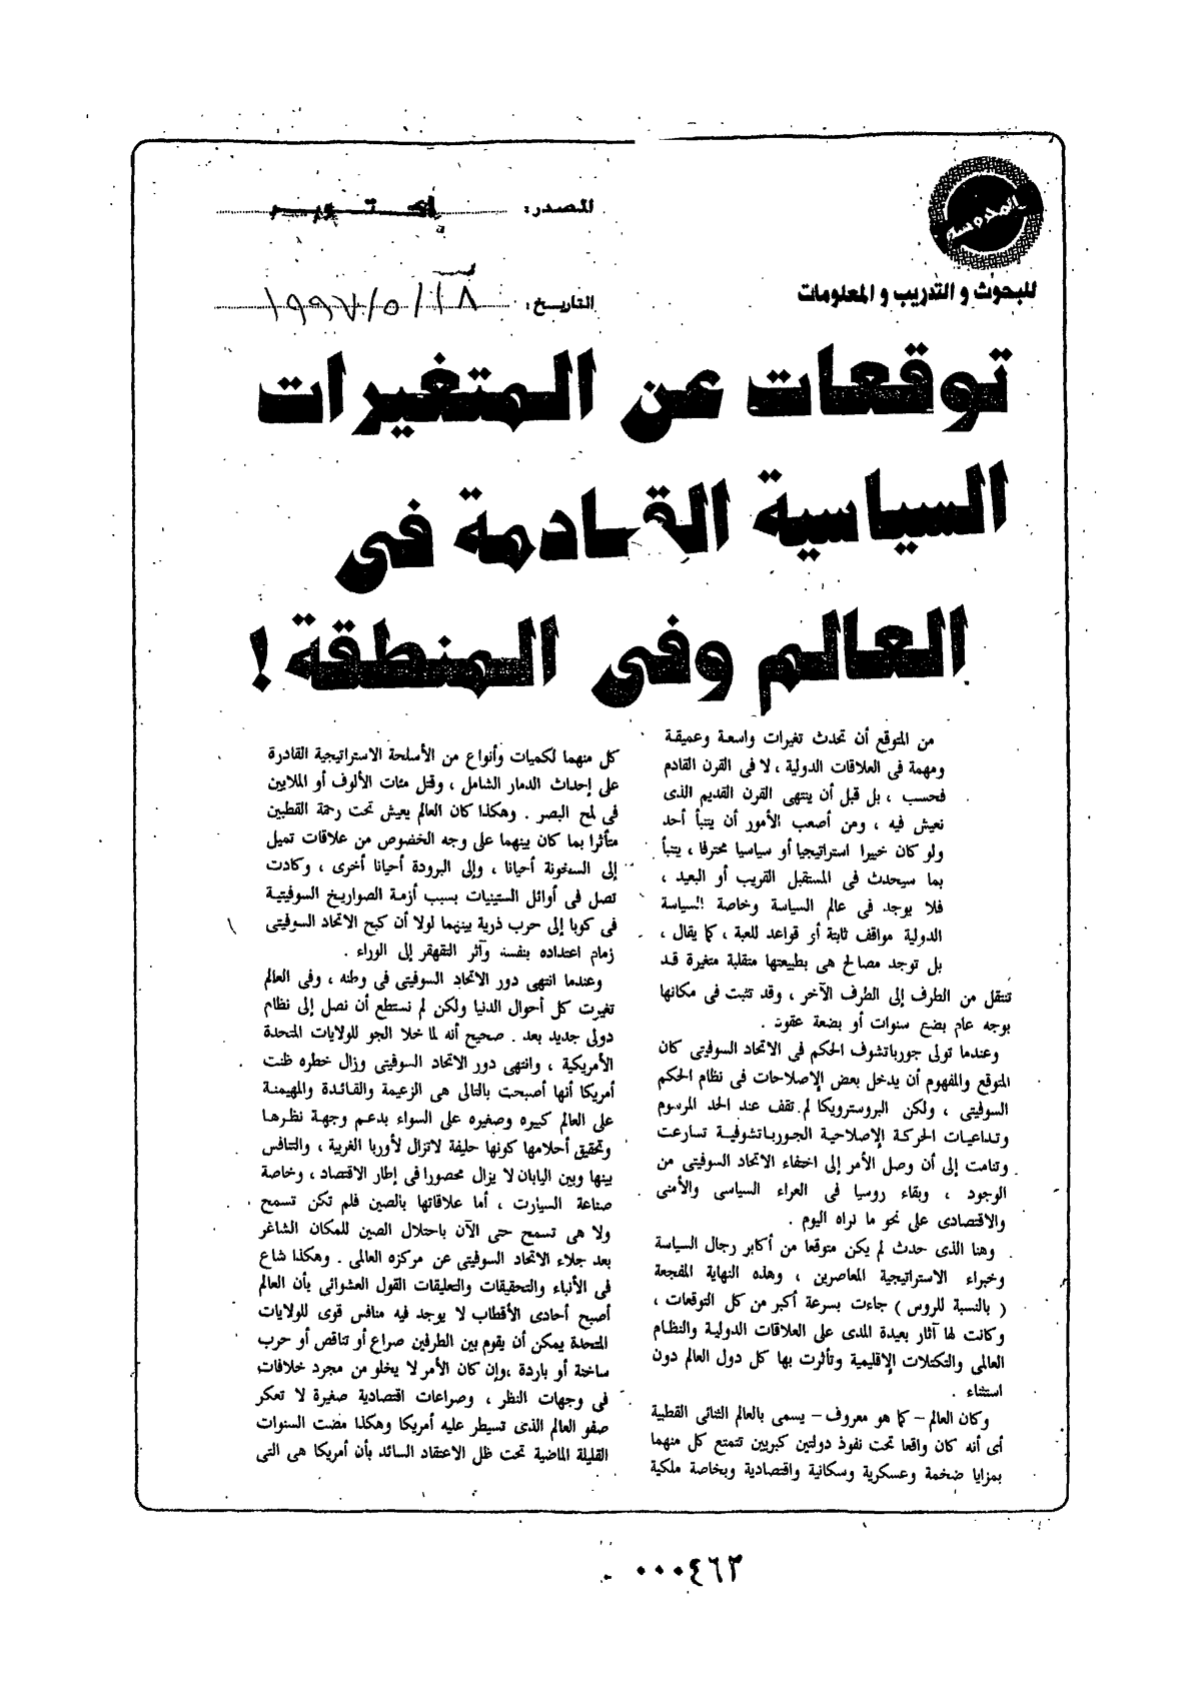 المصدر: أكتوبر
المدوسة
للبحوث و التدريب و المعلومات
التاريخ: ١٨/٥/١٩٩٧
توقعات عن المتغيرات
السياسية القادمة فى
العالم وفى المنطقة !
من المتوقع أن تحدث تغيرات واسعة وعميقة
ومهمة فى العلاقات الدولية ، لا فى القرن القادم
فحسب ، بل قبل أن ينتهى القرن القديم الذى
نعيش فيه ، ومن أصعب الأمور أن يتنبأ أحد
ولو كان خبيرا استراتيجيا أو سياسيا محترفا ، يتنبأ
بما سيحدث فى المستقبل القريب أو البعيد ،
فلا يوجد فى عالم السياسة وخاصة السياسة
الدولية مواقف ثابتة أو قواعد للعبة ، كما يقال ،
بل توجد مصالح هى بطبيعتها متقلبة متغيرة قد
تنتقل من الطرف إلى الطرف الآخر ، وقد تثبت فى مكانها
بوجه عام بضع سنوات أو بضعة عقود .
وعندما تولى جورباتشوف الحكم فى الاتحاد السوفيتى كان
المتوقع والمفهوم أن يدخل بعض الإصلاحات فى نظام الحكم
السوفيتى ، ولكن البروسترويكا لم تقف عند الحد المرسوم
وتداعيات الحركة الإصلاحية الجورباتشوفية تسارعت
وتنامت إلى أن وصل الأمر إلى اختفاء الاتحاد السوفيتى من
الوجود ، وبقاء روسيا فى العراء السياسى والأمنى
والاقتصادى على نحو ما نراه اليوم .
وهنا الذى حدث لم يكن متوقعا من أكابر رجال السياسة
وخبراء الاستراتيجية المعاصرين ، وهذه النهاية المفجعة
( بالنسبة للروس ) جاءت بسرعة أكبر من كل التوقعات ،
وكانت لها آثار بعيدة المدى على العلاقات الدولية والنظام
العالمى والتكتلات الإقليمية وتأثرت بها كل دول العالم دون
استثناء .
وكان العالم – كما هو معروف – يسمى بالعالم الثنائى القطبية
أى أنه كان واقعا تحت نفوذ دولتين كبريين تتمتع كل منهما
بمزايا ضخمة وعسكرية وسكانية واقتصادية وبخاصة ملكية
كل منهما لكميات وأنواع من الأسلحة الاستراتيجية القادرة
على إحداث الدمار الشامل ، وقتل مئات الألوف أو الملايين
فى لمح البصر . وهكذا كان العالم يعيش تحت رحمة القطبين
متأثرا بما كان بينهما على وجه الخصوص من علاقات تميل
إلى السخونة أحيانا ، وإلى البرودة أحيانا أخرى ، وكادت
تصل فى أوائل الستينيات بسبب أزمة الصواريخ السوفيتية
فى كوبا إلى حرب ذرية بينهما لولا أن كبح الاتحاد السوفيتى
زمام اعتداده بنفسه وآثر التقهقر إلى الوراء .
وعندما انتهى دور الاتحاد السوفيتى فى وطنه ، وفى العالم
تغيرت كل أحوال الدنيا ولكن لم نستطع أن نصل إلى نظام
دولى جديد بعد . صحيح أنه لما خلا الجو للولايات المتحدة
الأمريكية ، وانتهى دور الاتحاد السوفيتى وزال خطره ظنت
أمريكا أنها أصبحت بالتالى هى الزعيمة والقائدة والمهيمنة
على العالم كبيره وصغيره على السواء بدعم وجهة نظرها
وتحقيق أحلامها كونها حليفة لاتزال لأوربا الغربية ، والتنافس
بينها وبين اليابان لا يزال محصورا فى إطار الاقتصاد ، وخاصة
صناعة السيارت ، أما علاقاتها بالصين فلم تكن تسمح
ولا هى تسمح حتى الآن باحتلال الصين للمكان الشاغر
بعد جلاء الاتحاد السوفيتى عن مركزه العالمى . وهكذا شاع
فى الأنباء والتحقيقات والتعليقات القول العشوائى بأن العالم
أصبح أحادى الأقطاب لا يوجد فيه منافس قوى للولايات
المتحدة يمكن أن يقوم بين الطرفين صراع أو تناقض أو حرب
ساخنة أو باردة ،وإن كان الأمر لا يخلو من مجرد خلافات
فى وجهات النظر ، وصراعات اقتصادية صغيرة لا تعكر
صفو العالم الذى تسيطر عليه أمريكا وهكذا مضت السنوات
القليلة الماضية تحت ظل الاعتقاد السائد بأن أمريكا هى التى
٠٠٠٤٦٣